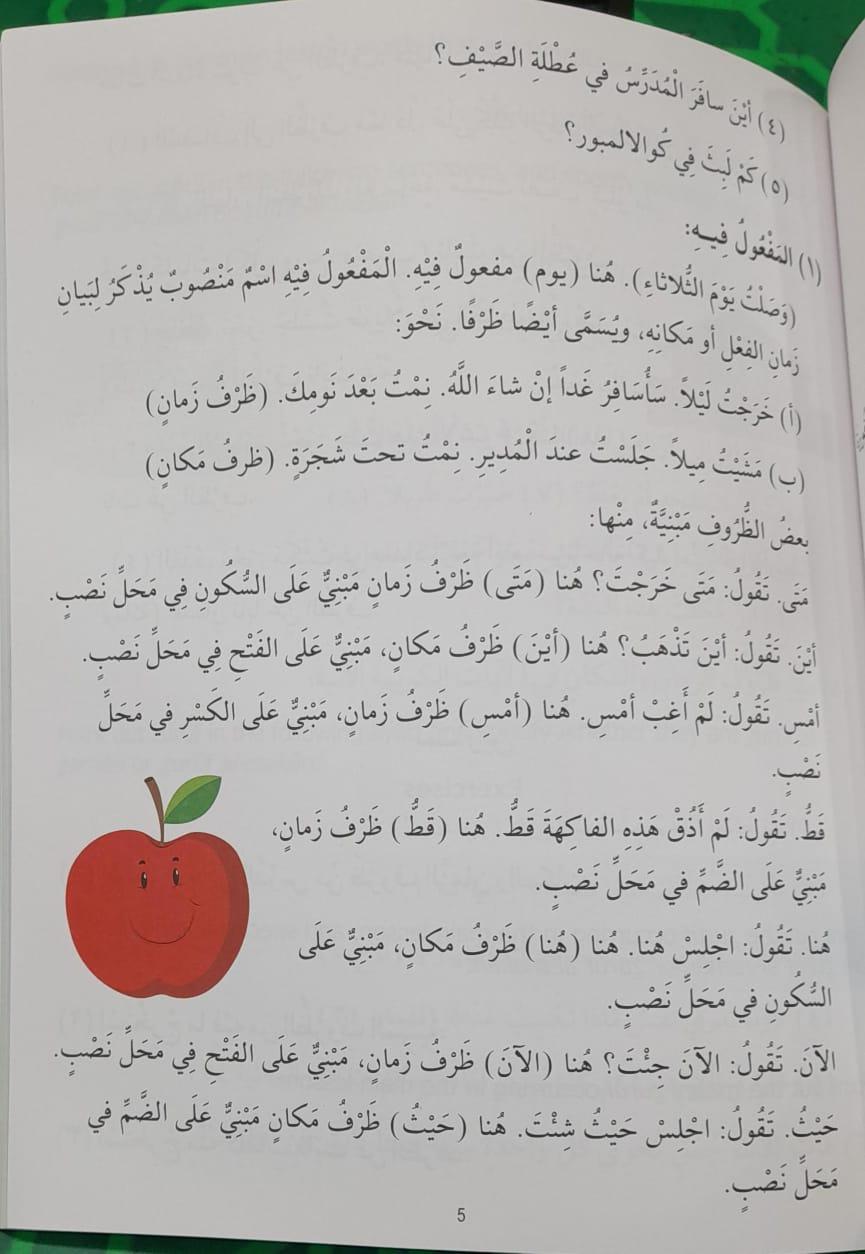 (٤) أَيْنَ سافَرَ الْمُدَرِّسُ في عُطْلَةِ الصَّيْفِ؟
(٥) كَمْ لَبِثَ فِي كُوالالمبور؟
(١) المَفْعُولُ فِيهِ:
(وَصَلْتُ يَوْمَ الثُّلاثاءِ). هُنا (يوم) مفعولٌ فِيْهِ. الْمَفْعُولُ فِيْهِ اسْمٌ مَنْصُوبٌ يُذْكَرُ لِبَيانِ
زَمانِ الفِعْلِ أو مَكانِهِ، ويُسَمَّى أيْضًا ظَرْفًا. نَحْوَ:
(أ) خَرَجْتُ لَيْلاً. سَأُسَافِرُ غَداً إنْ شاءَ اللَّهُ. نِمْتُ بَعْدَ نَومِكَ. (ظَرْفُ زَمانٍ)
(ب) مَشَيْتُ مِيلاً. جَلَسْتُ عندَ الْمُدِيرِ. نِمْتُ تحتَ شَجَرَةٍ. (ظرفُ مَكانٍ)
بعضُ الظُّرُوفِ مَبْنِيَّةٌ، مِنْها:
مَتَى. تَقُولُ: مَتَى خَرَجْتَ؟ هُنا (مَتَى) ظَرْفُ زَمانٍ مَبْنِيٌّ عَلَى السُّكُونِ فِي مَحَلِّ نَصْبٍ.
أيْنَ. تَقُولُ: أيْنَ تَذْهَبُ؟ هُنا (أيْنَ) ظَرْفُ مَكانٍ، مَبْنِيٌّ عَلَى الفَتْحِ فِي مَحَلِّ نَصْبٍ.
أمْسِ. تَقُولُ: لَمْ أَغِبْ أمْسِ. هُنا (أمْسِ) ظَرْفُ زَمانٍ، مَبْنِيٌّ عَلَى الكَسْرِ في مَحَلِّ
نَصْبٍ.
قَطُّ. تَقُولُ: لَمْ أَذُقْ هَذِهِ الفاكِهَةَ قَطُّ. هُنا (قَطُّ) ظَرْفُ زَمانٍ،
مَبْنِيٌّ عَلَى الضَّمِّ في مَحَلِّ نَصْبٍ.
هُنا. تَقُولُ: اجْلِسْ هُنا. هُنا (هُنا) ظَرْفُ مَكانٍ، مَبْنِيٌّ عَلَى
السُّكُونِ في مَحَلِّ نَصْبٍ.
الآنَ. تَقُولُ: الآنَ جِئْتَ؟ هُنا (الآنَ) ظَرْفُ زَمانٍ، مَبْنِيٌّ عَلَى الفَتْحِ فِي مَحَلِّ نَصْبٍ.
حَيْثُ. تَقُولُ: اجْلِسْ حَيْثُ شِئْتَ. هُنا (حَيْثُ) ظَرْفُ مَكانٍ مَبْنِيٌّ عَلَى الضَّمِّ في
مَحَلِّ نَصْبٍ.
5